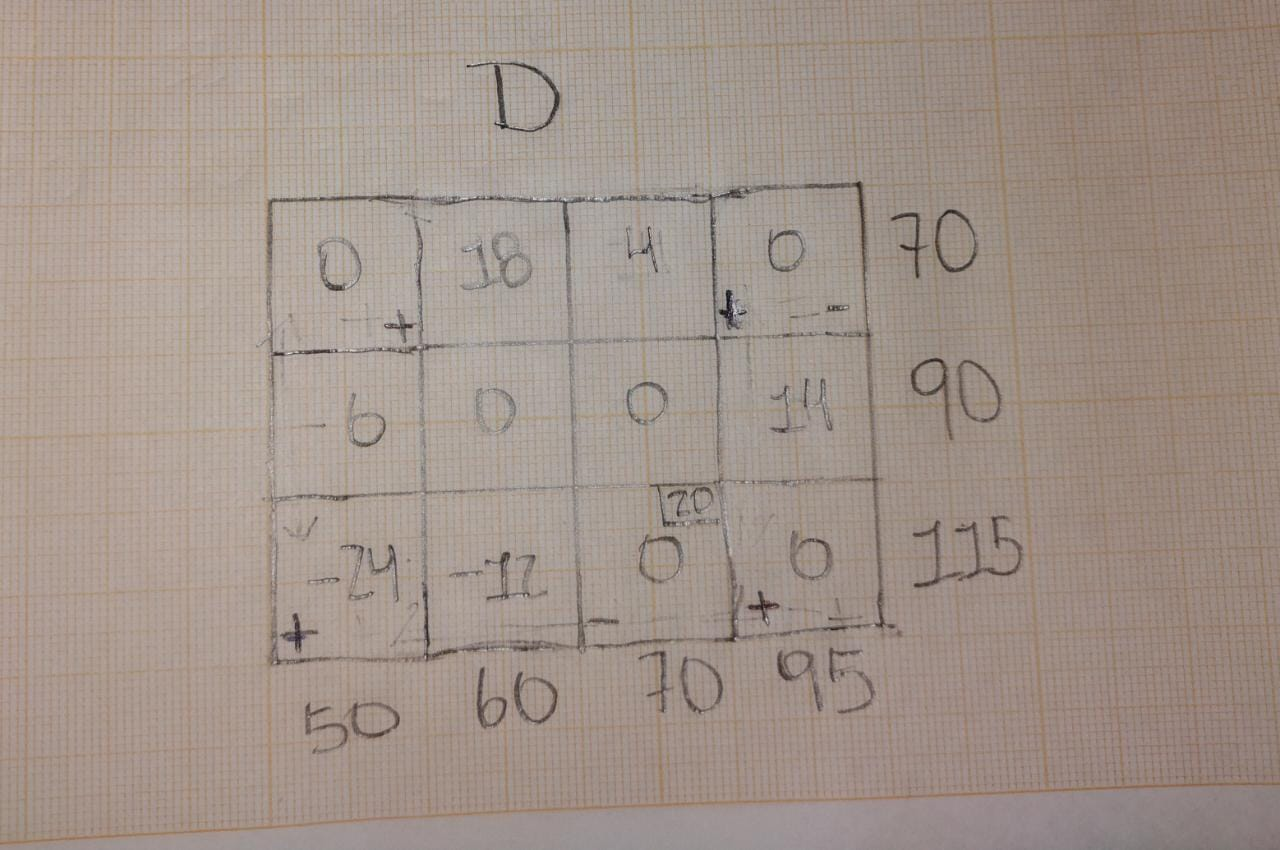 D
0 18 4 0 70
+ + - -
-6 0 0 14 90
20
-24 -12 0 0 115
+ - + +
50 60 70 95